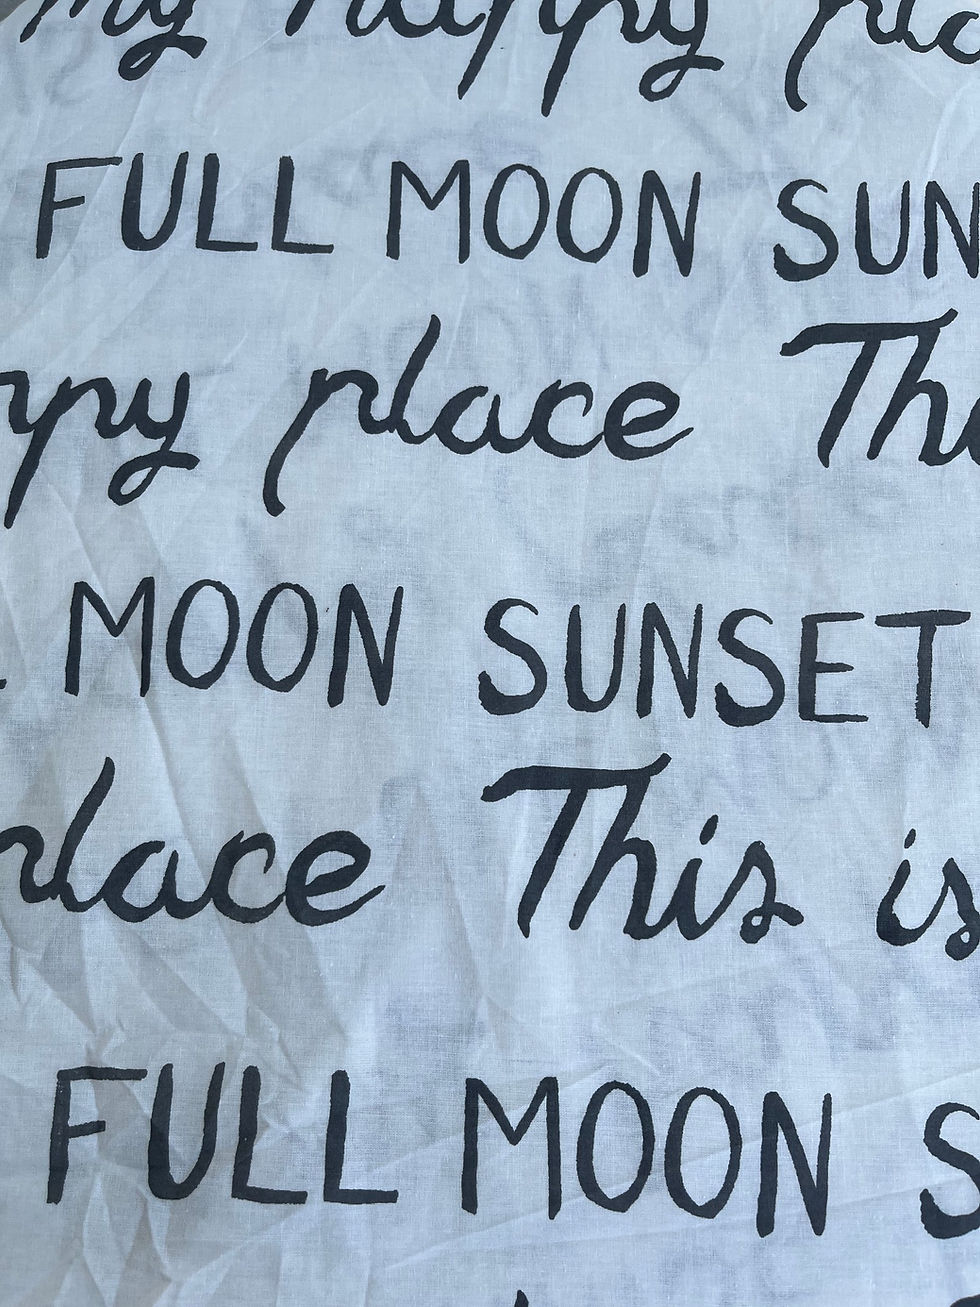 my happy pla
FULL MOON SUN
ppy place Th
MOON SUNSET
place This is
FULL MOON S